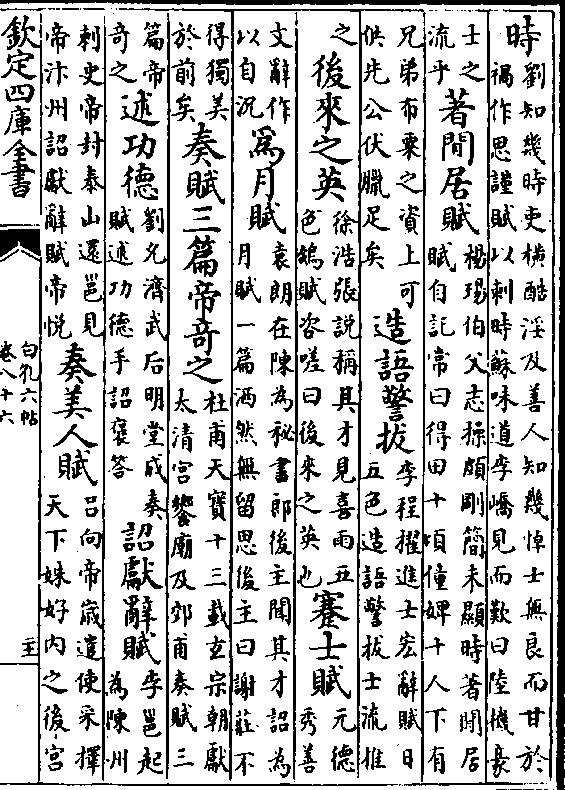 時劉知幾時吏横酷淫及善人知幾悼士無良而甘於禍作思謹賦以刺時蘇味道李嶠見而歎曰陸機豪
士之流乎著閒居賦楊瑒伯父志操頗剛簡未顯時著閒居賦自託常曰得田十頃僮婢十人下有
兄弟布粟之資上可供先公伏臘足矣造語警拔李程擢進士宏辭賦日五色造語警拔士流推
之後來之英徐浩張說稱其才見喜雨五色鴿賦咨嗟曰後來之英也蹇士賦元德秀善
文辭作以自況為月賦袁朗在陳為秘書郎後主聞其才詔為月賦一篇洒然無留思後主曰謝莊不
得獨美於前矣奏賦三篇帝竒之杜甫天寶十三載玄宗朝獻太清宫饗廟及郊甫奏賦三
篇帝竒之述功德劉允濟武后明堂成奏賦述功德手詔襃答詔獻辭賦李邕起為陳州
刺史帝封泰山還邕見帝汴州詔獻辭賦帝悦奏美人賦吕向帝歲遣使采擇天下姝好内之後宫
欽定四庫全書
白孔六帖
卷八十六